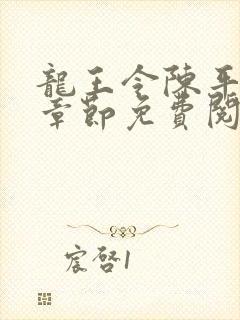 龍王令陳平
章節免費閱
宸啓1